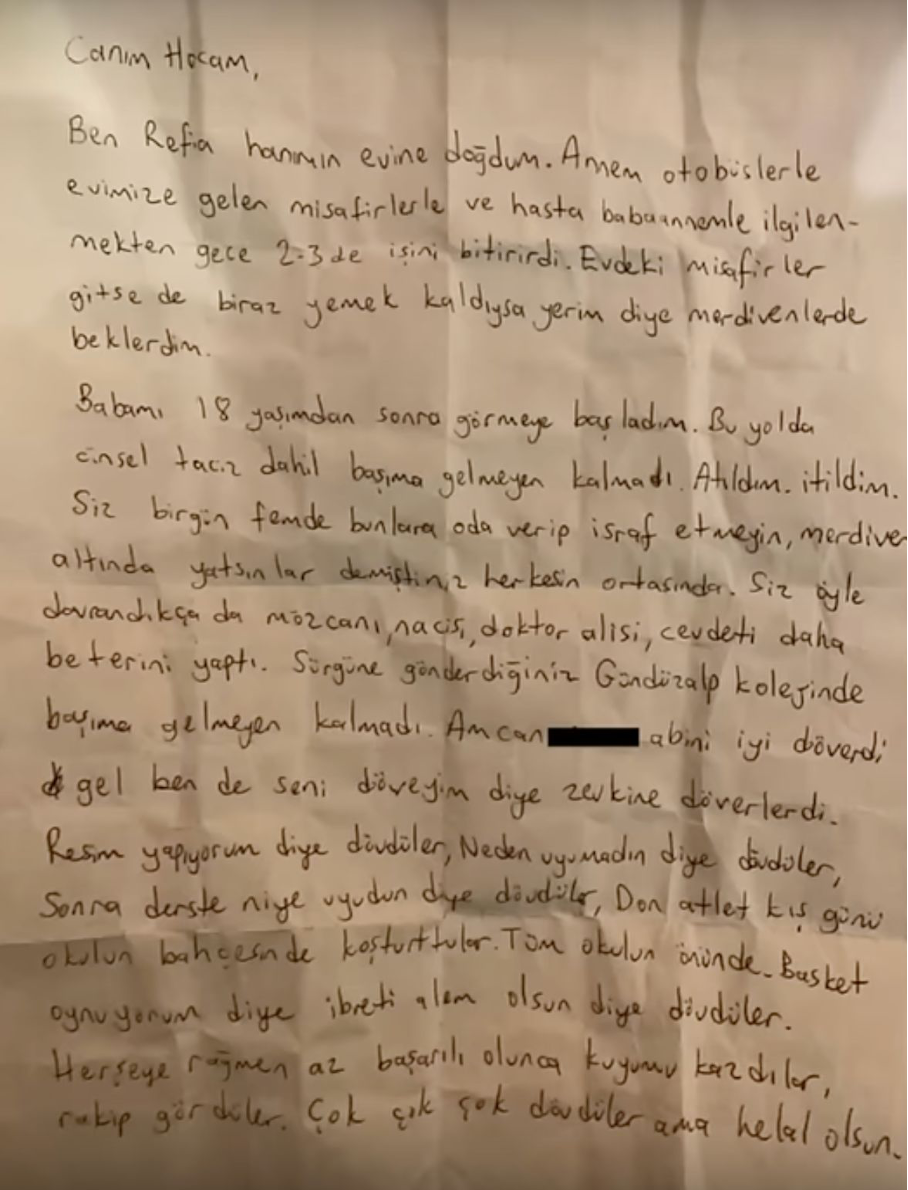 Canım Hocam,
Ben Refia hanımın evine doğdum. Annem otobüslerle
evimize gelen misafirlerle ve hasta babaannemle ilgilen-
mekten gece 2-3 de işini bitirirdi. Evdeki misafirler
gitse de biraz yemek kaldıysa yerim diye merdivenlerde
beklerdim.
Babamı 18 yaşımdan sonra görmeye başladım. Bu yolda
cinsel taciz dahil başıma gelmeyen kalmadı. Atıldım. itildim.
Siz birgün femde bunlara oda verip israf etmeyin, merdiven
altında yatsınlar demiştiniz herkesin ortasında. Siz öyle
davrandıkça da mözcanı, nacisi, doktor alisi, cevdeti daha
beterini yaptı. Sürgüne gönderdiğiniz Gündüzalp kolejinde
başıma gelmeyen kalmadı. Amcan abini iyi döverdi
gel ben de seni döveyim diye zevkine döverlerdi.
Resim yapıyorum diye dövdüler, Neden uyumadın diye dövdüler,
Sonra derste niye uyudun diye dövdüler, Don atlet kış günü
okulun bahçesinde koşturttular. Tüm okulun önünde. Basket
oynuyorum diye ibreti alem olsun diye dövdüler.
Herşeye rağmen az başarılı olunca kuyumu kazdılar,
rakip gördüler. Çok çok çok dövdüler ama helal olsun.